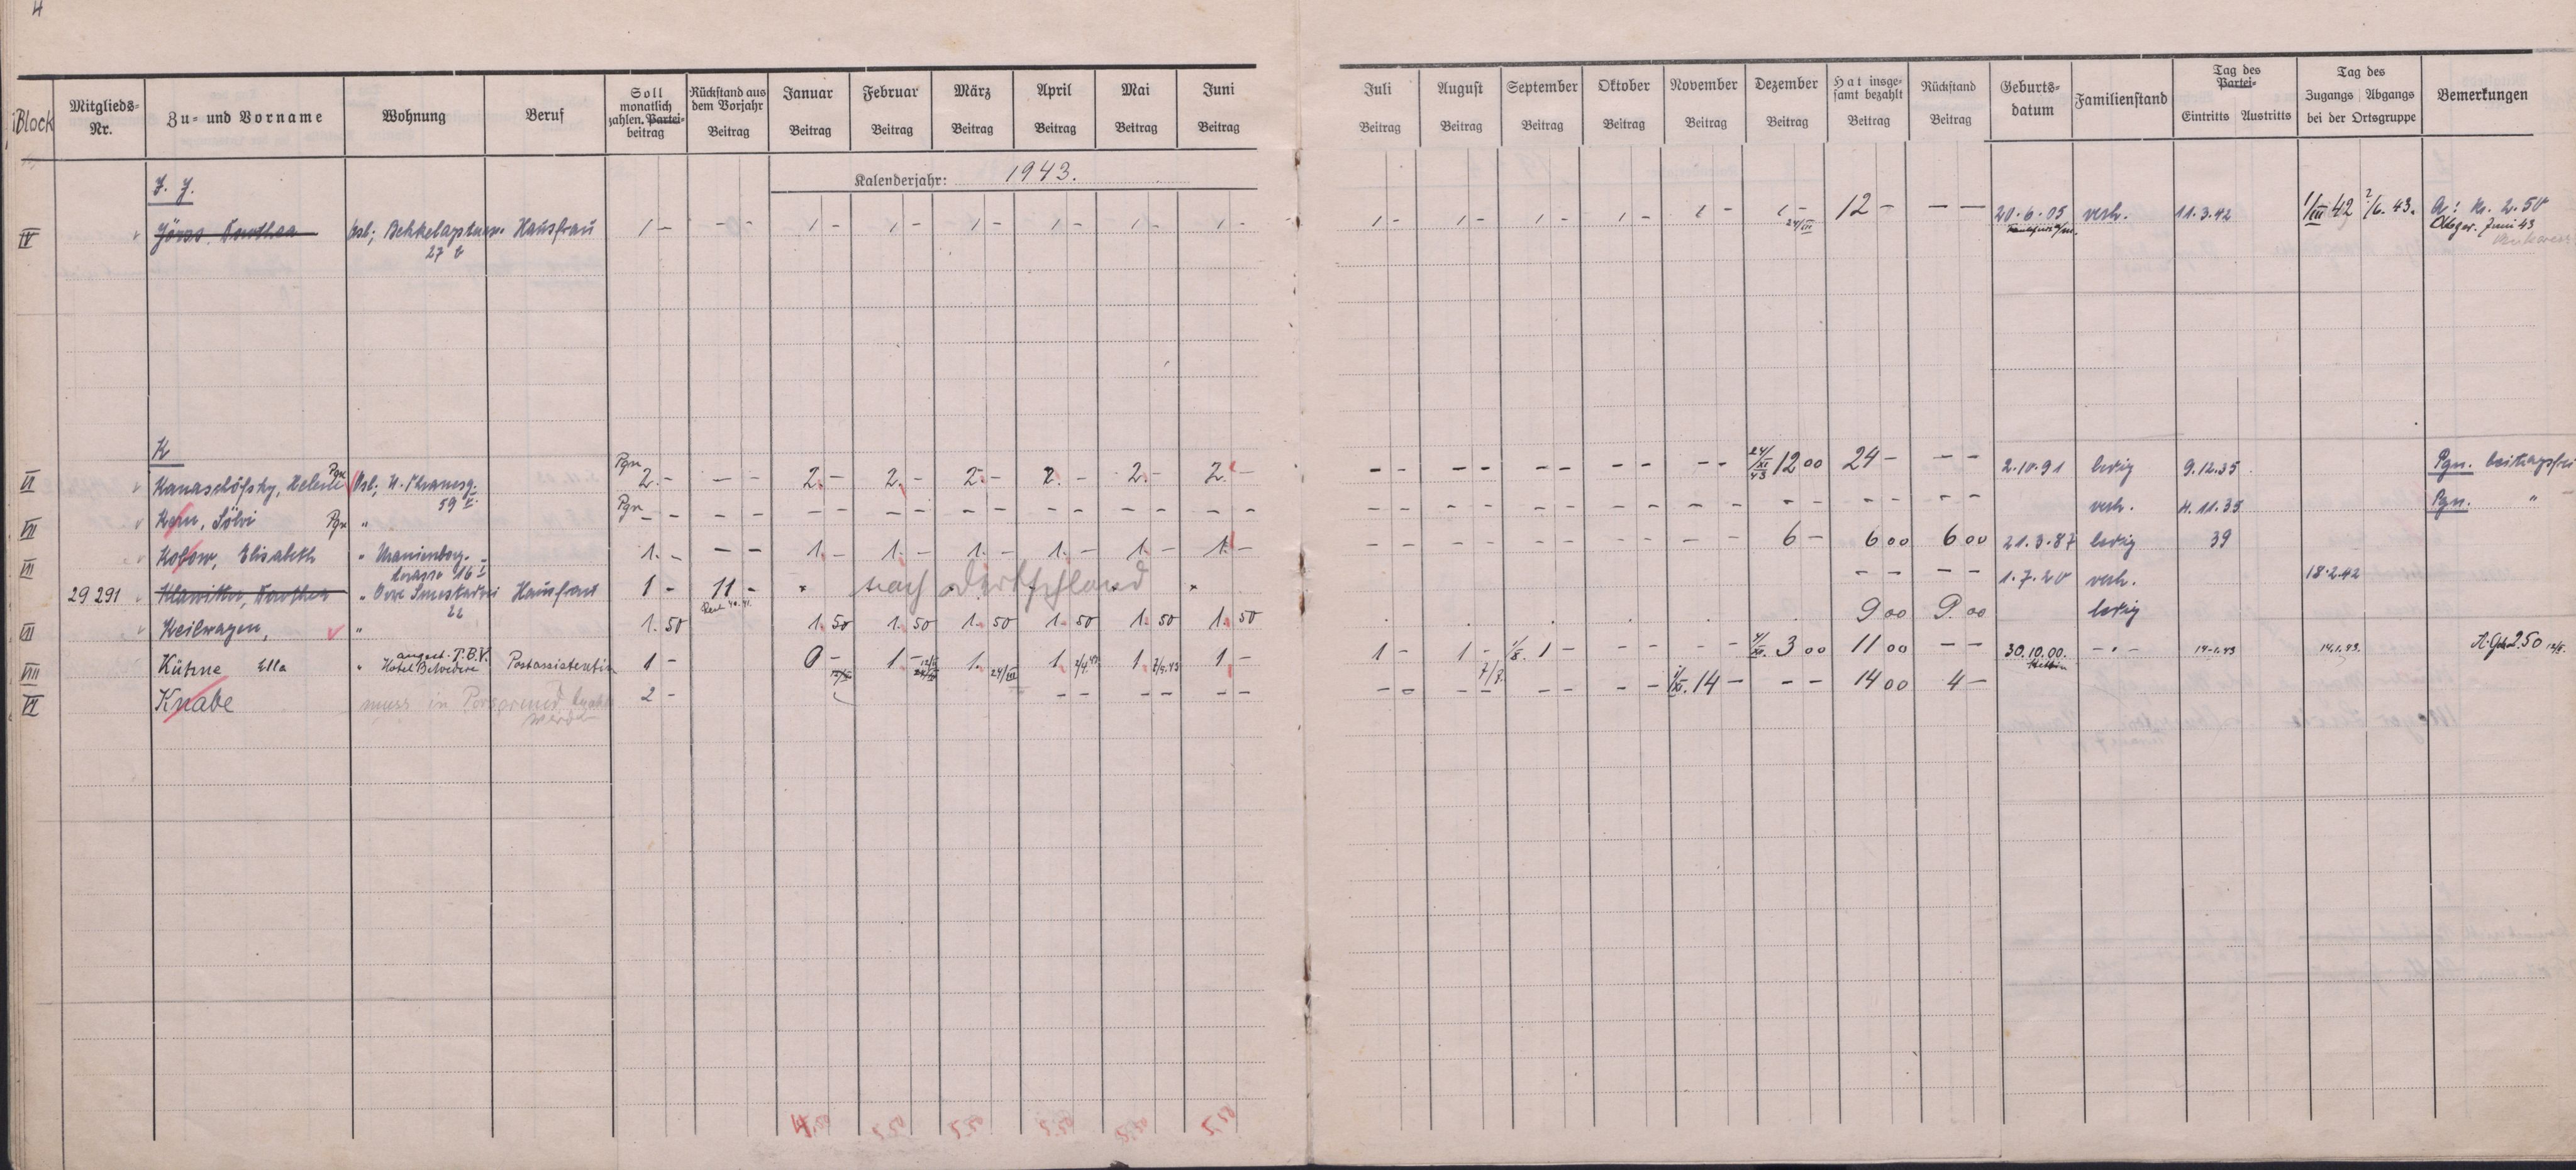 4
Block
Mitglieds-Nr.
Zu- und Vorname
Wohnung
Beruf
Soll monatlich zahlen. Partei-beitrag
Rückstand aus dem Vorjahr Beitrag
Januar Beitrag
Februar Beitrag
März Beitrag
April Beitrag
Mai Beitrag
Juni Beitrag
Juli Beitrag
August Beitrag
September Beitrag
Oktober Beitrag
November Beitrag
Dezember Beitrag
Hat insge-samt bezahlt Beitrag
Rückstand Beitrag
Geburts-datum
Familienstand
Tag des Partei- Eintritts Austritts
Tag des Zugangs Abgangs bei der Ortsgruppe
Bemerkungen
Kalenderjahr: 1943.
I. J.
IV Jörss Dorothea Osl; 27 Hausfrau 1 - - - 1 - 1 - 1 - 1 - 1 - 1 - 1 - 1 - 1 - 1 - 1 - 1 - 12 - - - 20.6.05 verh. 11.3.42 1/III 42 6.43. 2.50
Juni 43
K
Pgn
VI Helene Osl; 59 II 2.- - - 2.- 2.- 2.- 2.- 2.- 2.- - - - - - - - - - - 24/XI 43 12 00 24 - - - 2.10.91 ledig 9.12.35 Pgn. beitragsfrei
VII Kern, Sölvi Pgn " Pgn - - - - - - - - - - - - - - - - verh. 4.11.35 Pgn. "
III Kobow, Elisabeth " Uranienborg- terasse 16 I 1.- - - 1.- 1.- 1.- 1.- 1.- 1.- - - - - - - - - - - 6 - 6 00 6 00 21.3.87 ledig 39
29291 Dorothea " 22 Hausfrau 1 - 11 - nach Deutschland - - - - 1.7.20 verh. 18.2.42
VII Keilwagen, " 1.50 1.50 1.50 1.50 1.50 1.50 1.50 9 00 9.00 ledig
VIII Kühne Ella " angest. T.B.V. Hotel Belvedere Postassistentin 1 - 0 - 1.- 1. 24/III 1. 2/4.43 1. 7/5.43 1 - 1 - 1 - 7/8. 1 - - - - - 3 00 11 00 - - 30.10.00. Stettin - . - 14.1.43 14.1.43. 2.50
VI Knabe muss in Porsgrund werden 2 - - - - - - - - - - - - - - - 14 - - - 14 00 4 -
4.50 5.50 5.50 5.50 5.50 5.50